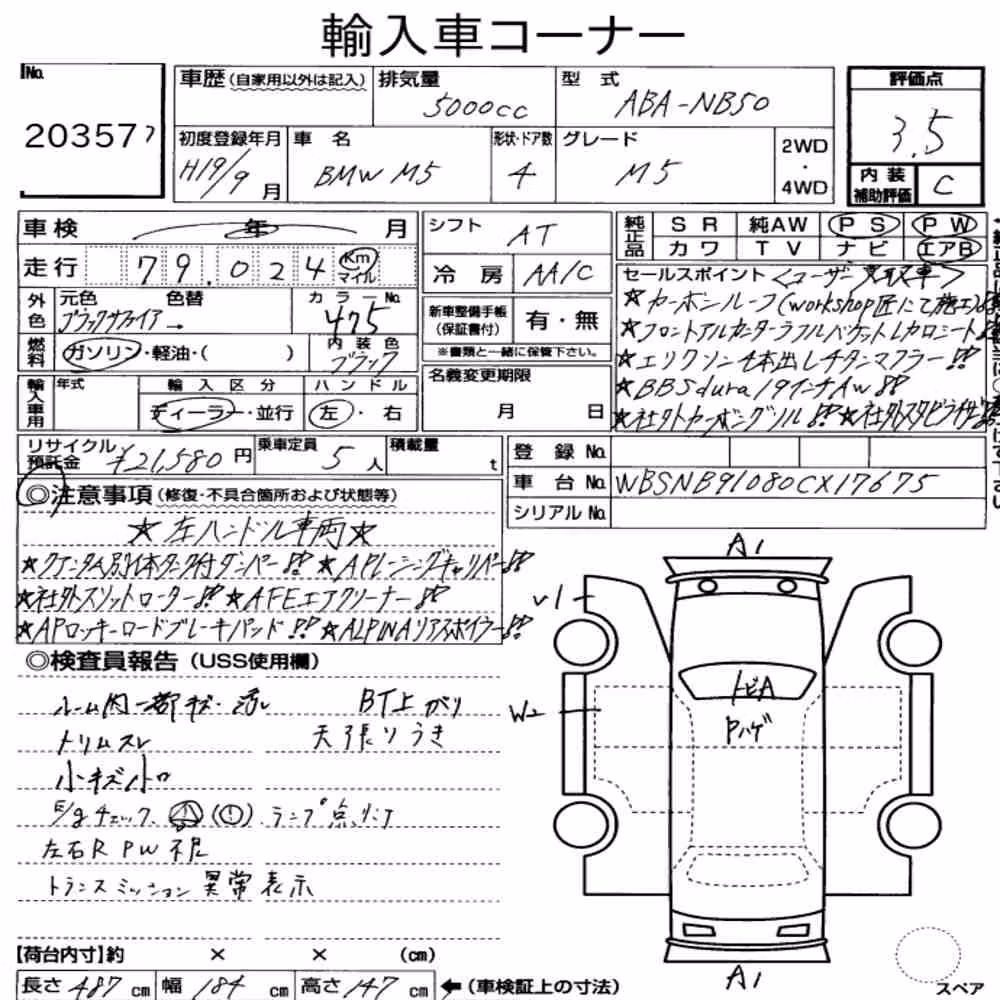 輸入車コーナー
No.
203577
車歴(自家用以外は記入)
排気量
5000cc
型 式
ABA-NB50
評価点
3.5
初度登録年月
H19/9月
車 名
BMW M5
形状・ドア数
4
グレード
M5
2WD
・
4WD
内装
補助評価
C
車検 年 月
シフト
AT
純正品
SR 純AW PS PW
カワ TV ナビ エアB
走行 79.024 Km
マイル
冷 房
AA/C
セールスポイント <ユーザー買取車>
外色
元色 色替
ブラックサファイア→
カラーNo.
475
新車整備手帳
(保証書付)
有・無
※書類と一緒に保管下さい。
★カーボンルーフ(workshop匠にて施工)!!
★フロントアルカンターラフルバケットLカロシート!!
★エリクソン4本出しチタンマフラー!!
★BBSdura19インチAw!!
★社外カーボングリル!! ★社外スタビライザー!!
燃料
ガソリン・軽油・( )
内装色
ブラック
名義変更期限
月 日
輸入車用
年式
輸入区分
ディーラー・並行
ハンドル
左・右
リサイクル
預託金
¥21,580円
乗車定員
5人
積載量
t
登録No.
車台No.
WBSNB91080CX17675
シリアルNo.
◎注意事項(修復・不具合箇所および状態等)
★左ハンドル車両★
★クァンタム別体タンク付ダンパー!! ★APレーシングキャリパー!!
★社外スリットローター!! ★AFEエアクリーナー!!
★APロッキーロードブレーキパッド!! ★ALPINAリアスポイラー!!
◎検査員報告(USS使用欄)
ルーム内一部キズ・汚れ BT上がり
トリムスレ 天張りうき
小キズ小凹
E/gチェック. (!) ランプ点灯
左右R PW不良
トランスミッション異常表示
A1
V1
W2
トビA
Pハゲ
A1
スペア
【荷台内寸】約 × × (cm)
長さ 487 cm 幅 184 cm 高さ 147 cm ←(車検証上の寸法)